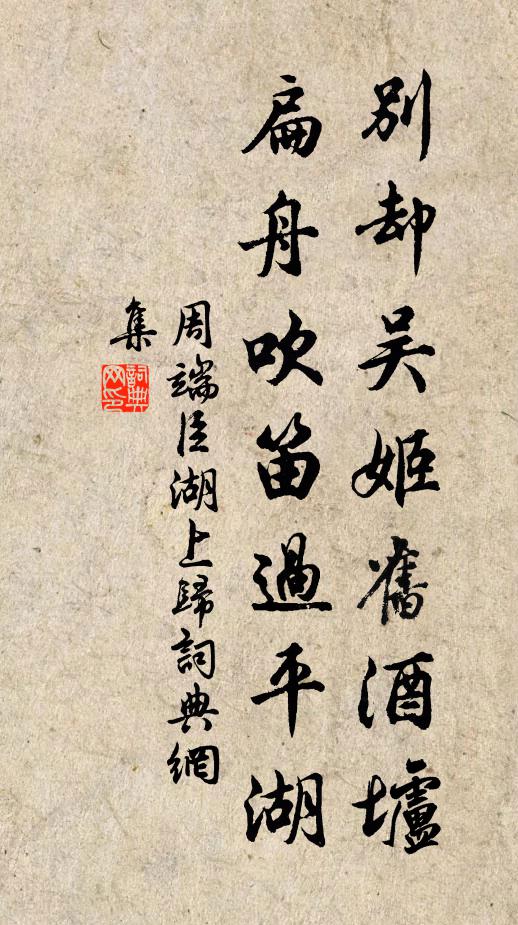 别却吴姬舊酒壚
扁舟吹笛過平湖
周端臣湖上歸詞典網
集
詞典
网印